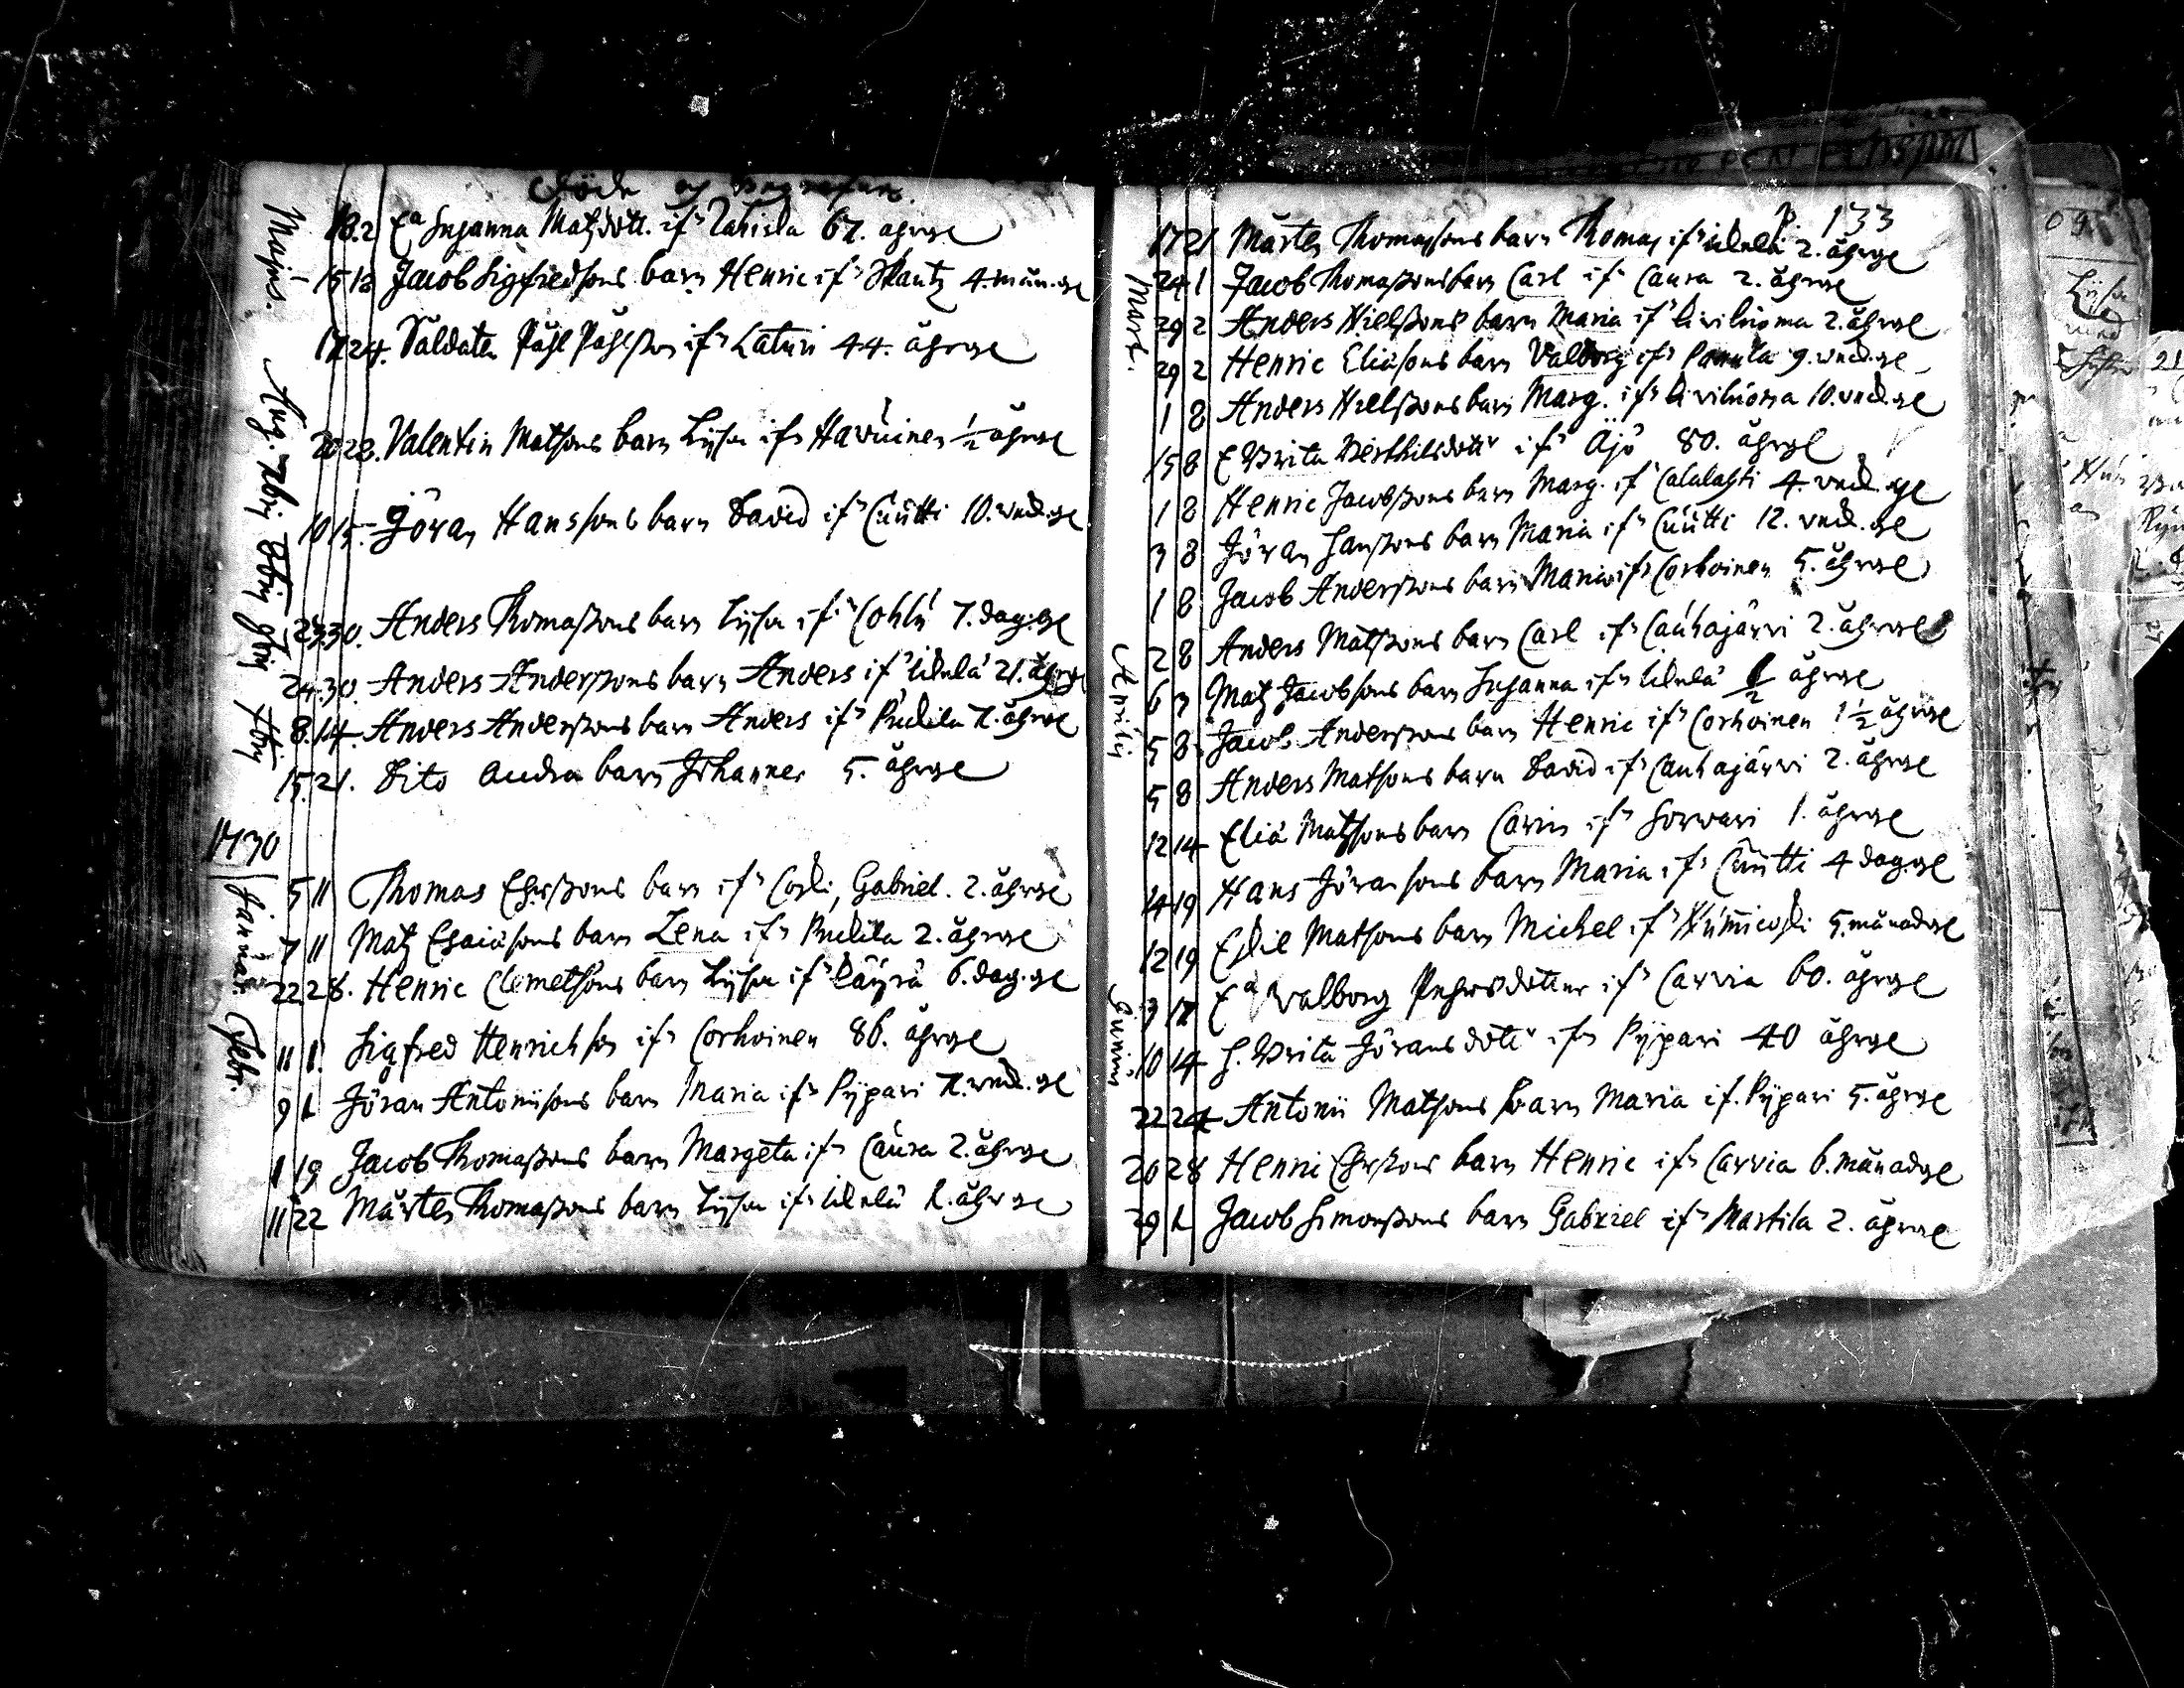 Döde og Begrafne.
Majus.
18. 2 Ea Susanna Matzdott. ifr Tahisla 67. åhrge
15 18 Jacob Sigfredsons barn Henric ifr Skantz 4. mån.ge
17 24. Saldaten Påhl Påhlsson ifr Laturi 44. åhrge
Aug.
20 28. Valentin Matsons barn Lijsa ifr Havuinen ½ åhrge
7bri 8bri
10 15. Jöran Hanssons barn David ifr Cuutti 10. veck.ge
9bri
23 30. Anders Thomassons barn Lijsa ifr Cohlu 7. dag.ge
24. 30. Anders Anderssons barn Anders ifr Uckelä 21. åhrge
8. 14. Anders Anderssons barn Anders ifr Puckila 7. åhrge
15. 21. Dito andra barn Johannes 5. åhrge
1730
Januar.
5 11 Thomas Ehrssons barn ifr Coski, Gabriel. 2. åhrge
7 11 Matz Esaiæsons barn Lena ifr Puckila 2. åhrge
22 28. Henric Clemetsons barn Lijsa ifr Räyrä 6. dag.ge
Febr.
11 1. Sigfred Henrichson ifr Corhoinen 86. åhrge
9 1 Jöran Antonijsons barn Maria ifr Pijpari 7. veck.ge
1 19 Jacob Thomassons barn Margeta ifr Caura 2. åhrge
11 22 Mårten Thomassons barn Lijsa ifr Uckelä 1. åhrge
P. 133
17 21 Mårten Thomassons barn Thomas ifr Uckelä 2. åhrge
Mart.
24 1 Jacob Thomassons barn Carl ifr Caura 2. åhrge
29 2 Anders Nielssons barn Maria ifr Kiviluoma 2. åhrge
29 2 Henric Eliæsons barn Valborg ifr Panula 9. veck.ge
1 8 Anders Nielssons barn Marg. ifr Kiviluoma 10. veck.ge
15 8 E Brita Berthilsdottr ifr Äjö 80. åhrge
1 8 Henric Jacobssons barn Marg. ifr Calalahti 4. veck.ge
3 8 Jöran Hanssons barn Maria ifr Cuutti 12. veck.ge
1 8 Jacob Anderssons barn Maria ifr Corhoinen 5. åhrge
Aprilij
2 8 Anders Matssons barn Carl ifr Cauhajärvi 2. åhrge
6 7 Matz Jacobsons barn Susanna ifr Uckelä ½ åhrge
5 8 Jacob Anderssons barn Henric ifr Corhoinen 1½ åhrge
5 8 Anders Matsons barn David ifr Cauhajärvi 2. åhrge
12 14 Eliæ Matzsons barn Carin ifr Sorvari 1. åhrge
14 19 Hans Jöransons barn Maria ifr Cuutti 4 dag.ge
12 19 Eskil Matsons barn Michel ifr Nummicoski 5. månadge
Junius
3 17 Ea Walborg Pehrsdotter ifr Carvia 60. åhrge
10 14 H. Brita Jöransdottr ifr Pijpari 40 åhrge
22 24 Antonii Matsons barn Maria if. Pijpari 5. åhrge
20 28 Henric Ehrssons barn Henric ifr Carvia 6. månadge
29 1 Jacob Simonssons barn Gabriel ifr Martila 2. åhrge